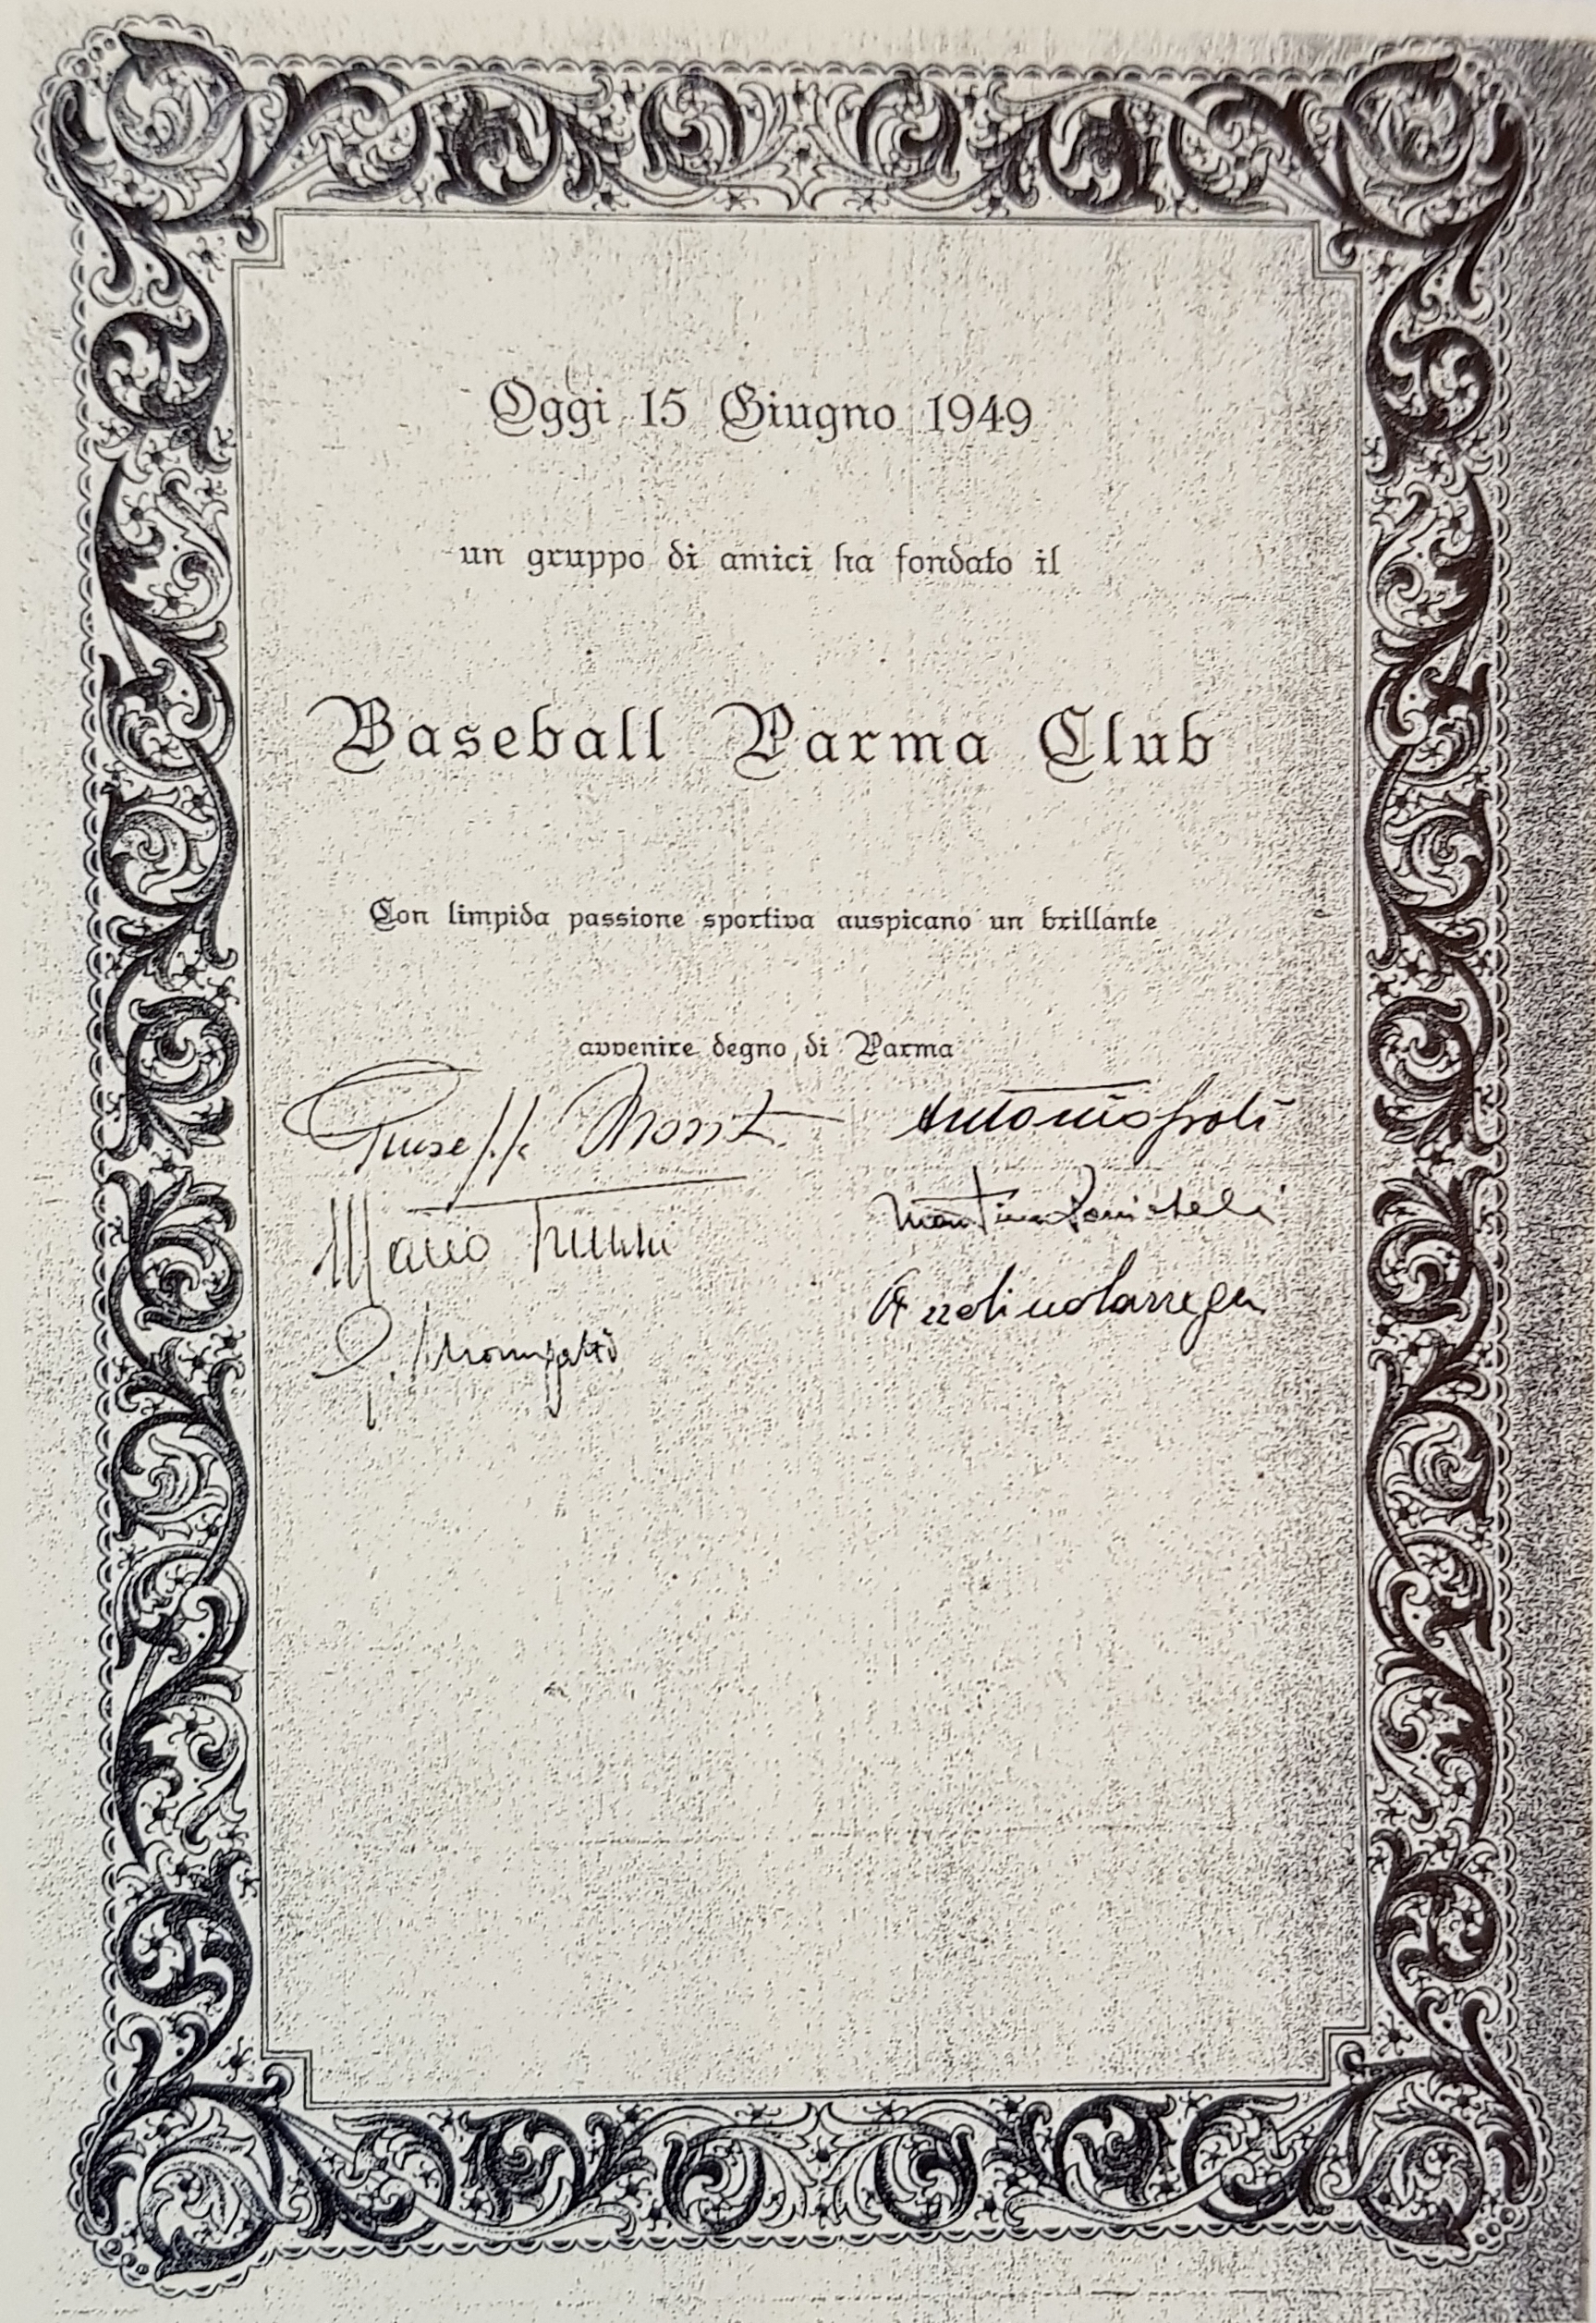 Oggi 15 Giugno 1949
un gruppo di amici ha fondato il
Baseball Parma Club
Con limpida passione sportiva auspicano un brillante
avvenire degno di Parma
Giuseppe
Mario